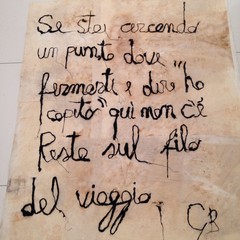 Se stai cercando
un punto dove
fermarti e dire "ho
capito" qui non c'è
Resta sul filo
del viaggio
CB